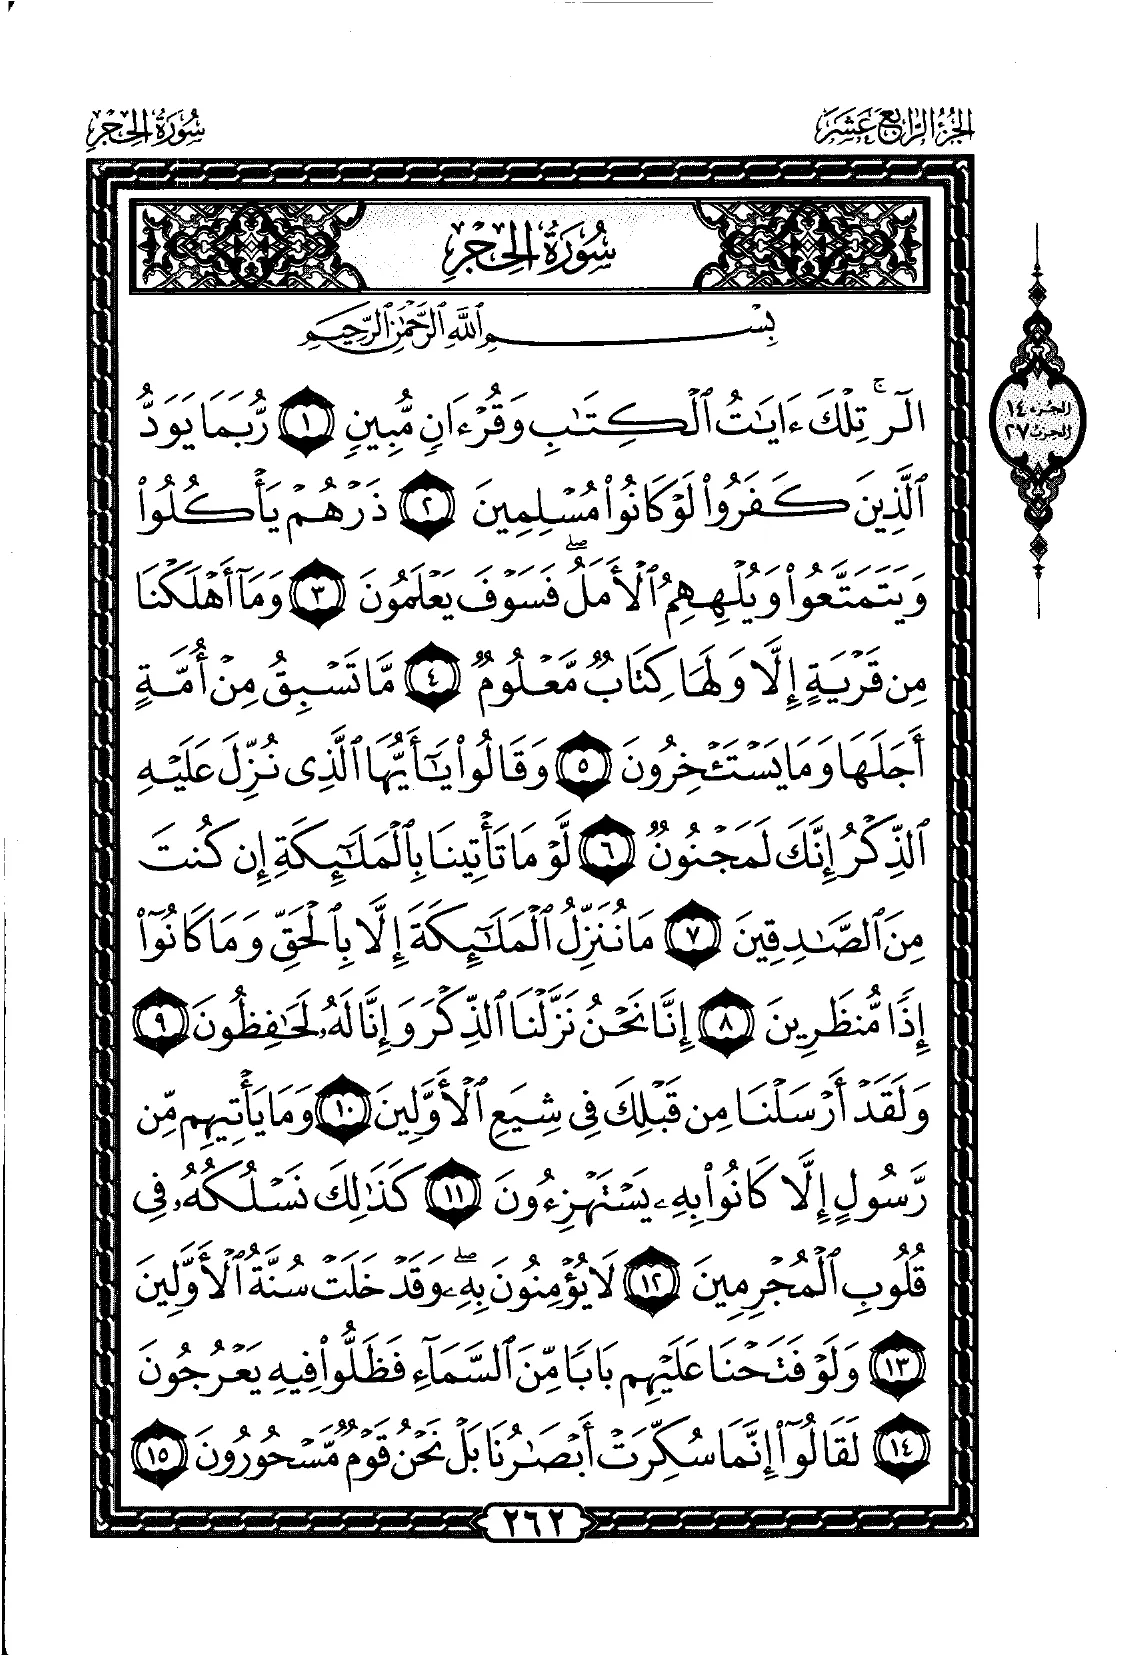 الجزء الرابع عشر
سورة الحجر
سورة الحجر
بسم الله الرحمن الرحيم
الٓرۚ تِلۡكَ ءَايَٰتُ ٱلۡكِتَٰبِ وَقُرۡءَانٖ مُّبِينٖ ١ رُّبَمَا يَوَدُّ
ٱلَّذِينَ كَفَرُواْ لَوۡ كَانُواْ مُسۡلِمِينَ ٢ ذَرۡهُمۡ يَأۡكُلُواْ
وَيَتَمَتَّعُواْ وَيُلۡهِهِمُ ٱلۡأَمَلُۖ فَسَوۡفَ يَعۡلَمُونَ ٣ وَمَآ أَهۡلَكۡنَا
مِن قَرۡيَةٍ إِلَّا وَلَهَا كِتَابٞ مَّعۡلُومٞ ٤ مَّا تَسۡبِقُ مِنۡ أُمَّةٍ
أَجَلَهَا وَمَا يَسۡتَـٔۡخِرُونَ ٥ وَقَالُواْ يَٰٓأَيُّهَا ٱلَّذِي نُزِّلَ عَلَيۡهِ
ٱلذِّكۡرُ إِنَّكَ لَمَجۡنُونٞ ٦ لَّوۡ مَا تَأۡتِينَا بِٱلۡمَلَٰٓئِكَةِ إِن كُنتَ
مِنَ ٱلصَّٰدِقِينَ ٧ مَا نُنَزِّلُ ٱلۡمَلَٰٓئِكَةَ إِلَّا بِٱلۡحَقِّ وَمَا كَانُوٓاْ
إِذٗا مُّنظَرِينَ ٨ إِنَّا نَحۡنُ نَزَّلۡنَا ٱلذِّكۡرَ وَإِنَّا لَهُۥ لَحَٰفِظُونَ ٩
وَلَقَدۡ أَرۡسَلۡنَا مِن قَبۡلِكَ فِي شِيَعِ ٱلۡأَوَّلِينَ ١٠ وَمَا يَأۡتِيهِم مِّن
رَّسُولٍ إِلَّا كَانُواْ بِهِۦ يَسۡتَهۡزِءُونَ ١١ كَذَٰلِكَ نَسۡلُكُهُۥ فِي
قُلُوبِ ٱلۡمُجۡرِمِينَ ١٢ لَا يُؤۡمِنُونَ بِهِۦۖ وَقَدۡ خَلَتۡ سُنَّةُ ٱلۡأَوَّلِينَ
١٣ وَلَوۡ فَتَحۡنَا عَلَيۡهِم بَابٗا مِّنَ ٱلسَّمَآءِ فَظَلُّواْ فِيهِ يَعۡرُجُونَ
١٤ لَقَالُوٓاْ إِنَّمَا سُكِّرَتۡ أَبۡصَٰرُنَا بَلۡ نَحۡنُ قَوۡمٞ مَّسۡحُورُونَ ١٥
الجزء ١٤
الحزب ٢٧
٢٦٢